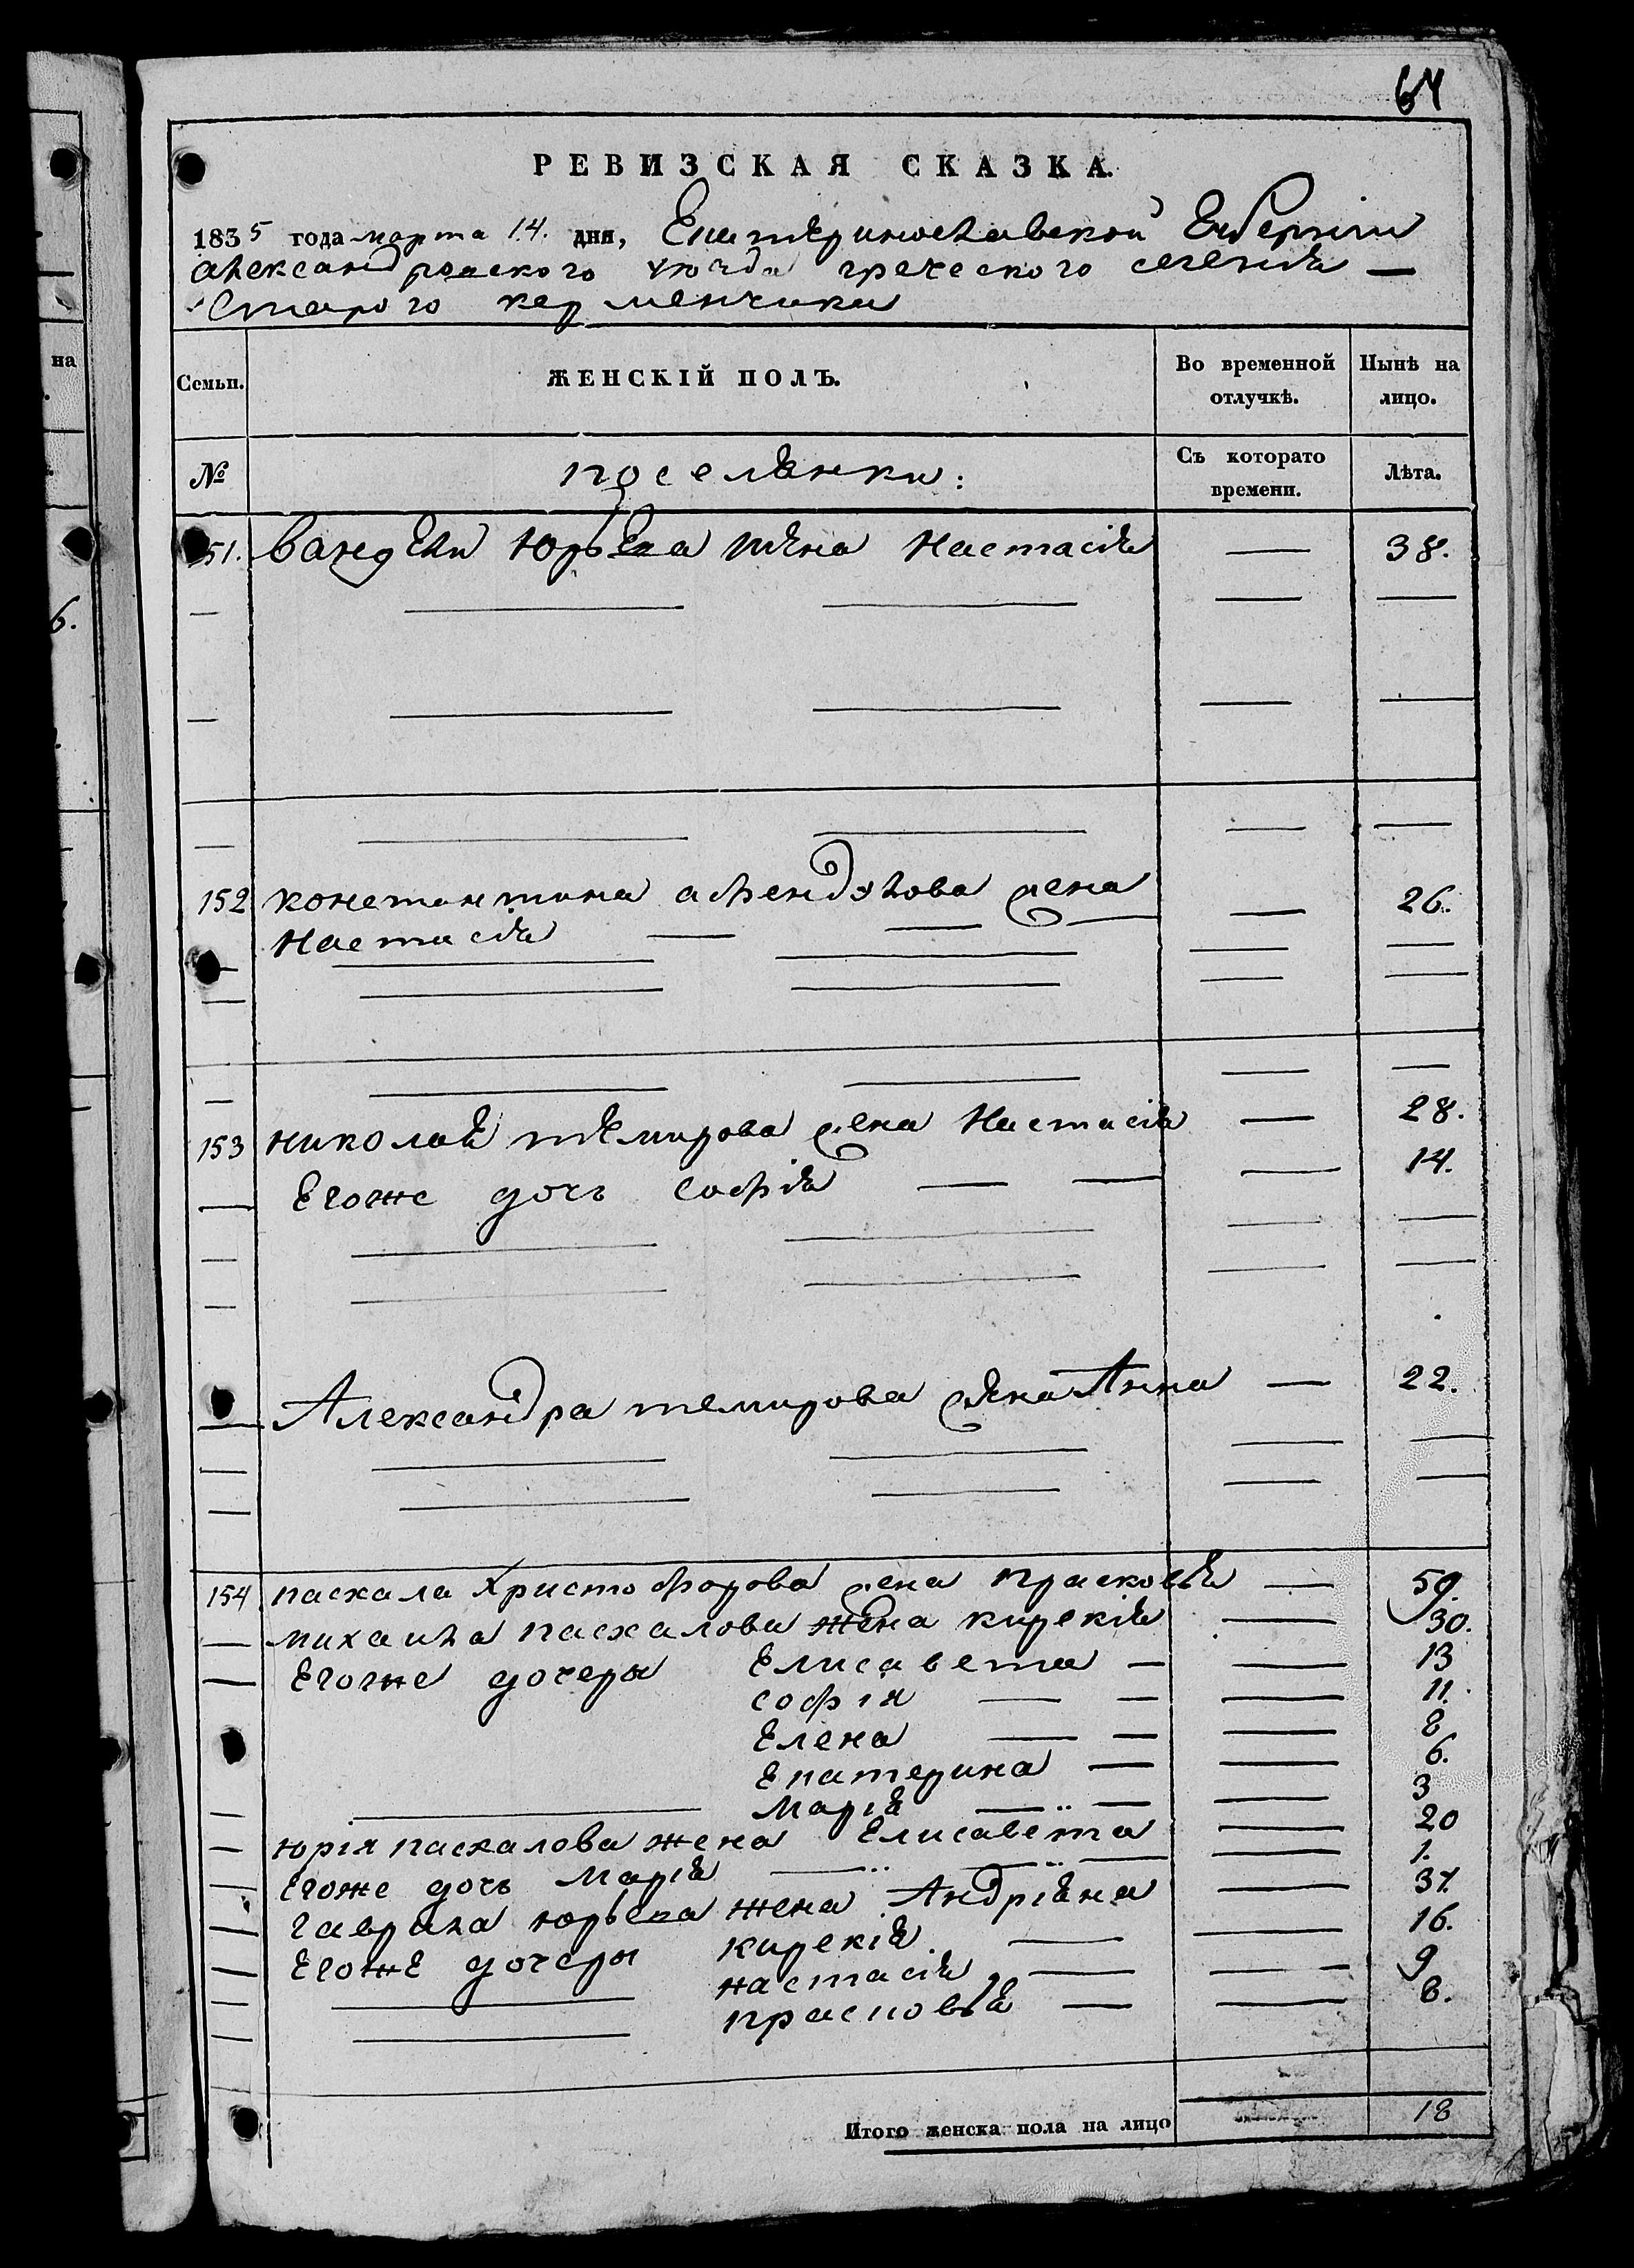 64
РЕВИЗСКАЯ СКАЗКА.
1835 года марта 14. дня, Екатеринославской Губернiи
александровского уезда греческого селенiя —
Старого керменчика
Семьи. ЖЕНСКІЙ ПОЛЪ. Во временной отлучкѣ. Нынѣ на лицо.
№ поселянки: Съ которато времени. Лѣта.
на
6.
51. Юрьева жена Настасiя — 38.
152 константина афендѣлова жена — 26.
Настасiя
153 николая темирова жена Настасiя — 28.
Егоже дочь Софiя — 14.
Александра темирова жена Анна — 22.
154 пасхала Христофорова жена Прасковья — 59.
михаила пасхалова жена кирекiя — 30.
Егоже дочеры Елисавета — 13
софiя — 11.
Елена — 8
Екатерина — 6.
Марiя — 3
юрiя пасхалова жена Елисавета — 20
Егоже дочь Марiя — 1.
гаврила юрьева жена Андрiяна — 37.
Егоже дочеры кирекiя — 16.
настасiя — 9
прасковья — 8.
Итого женска пола на лицо 18